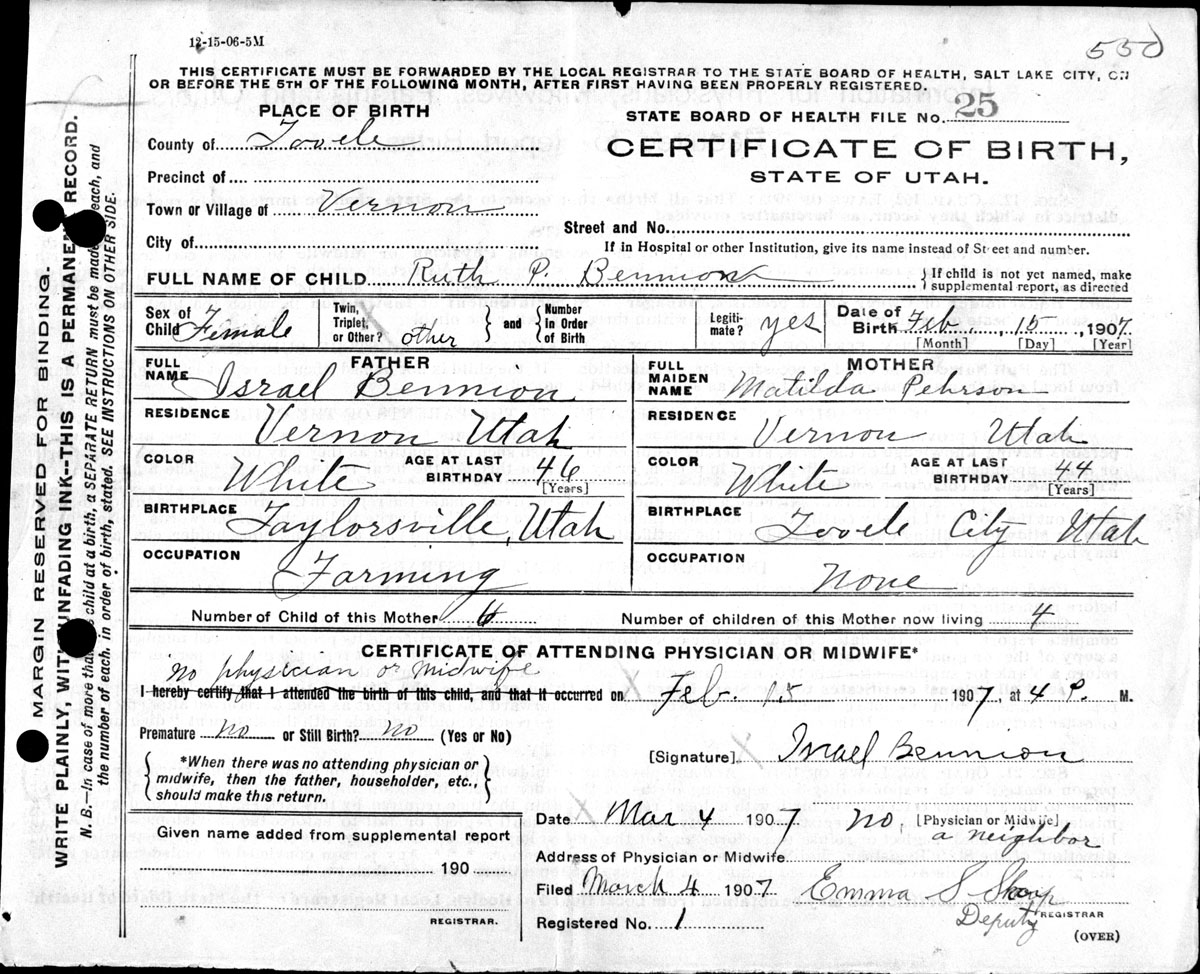 12-15-06-5M
550
THIS CERTIFICATE MUST BE FORWARDED BY THE LOCAL REGISTRAR TO THE STATE BOARD OF HEALTH, SALT LAKE CITY, ON
OR BEFORE THE 5TH OF THE FOLLOWING MONTH, AFTER FIRST HAVING BEEN PROPERLY REGISTERED.
PLACE OF BIRTH
STATE BOARD OF HEALTH FILE No. 25
County of Tooele
CERTIFICATE OF BIRTH,
STATE OF UTAH.
Precinct of
Town or Village of Vernon
Street and No.
City of
If in Hospital or other Institution, give its name instead of Street and number.
FULL NAME OF CHILD Ruth P. Bennion
{If child is not yet named, make
supplemental report, as directed
Sex of Child Female
Twin, Triplet, or Other? other
} and { Number in Order of Birth
Legiti-mate? yes
Date of Birth Feb. 15, 1907.
[Month] [Day] [Year]
FATHER
FULL NAME Israel Bennion
MOTHER
FULL MAIDEN NAME Matilda Pehrson
RESIDENCE Vernon Utah
RESIDENCE Vernon Utah
COLOR White AGE AT LAST BIRTHDAY 46 [Years]
COLOR White AGE AT LAST BIRTHDAY 44 [Years]
BIRTHPLACE Taylorsville, Utah
BIRTHPLACE Tooele City Utah
OCCUPATION Farming
OCCUPATION None
Number of Child of this Mother
Number of children of this Mother now living 4
CERTIFICATE OF ATTENDING PHYSICIAN OR MIDWIFE*
no physician or midwife
I hereby certify that I attended the birth of this child, and that it occurred on Feb. 15 1907, at 4 P. M.
Premature no or Still Birth? no (Yes or No)
[Signature] Israel Bennion
{*When there was no attending physician or
midwife, then the father, householder, etc.,
should make this return.}
Date Mar 4 1907 no. [Physician or Midwife]
a neighbor
Given name added from supplemental report
190
REGISTRAR.
Address of Physician or Midwife
Filed March 4 1907 Emma S Sharp
Deputy REGISTRAR
Registered No. 1
(OVER)
MARGIN RESERVED FOR BINDING.
WRITE PLAINLY, WITH UNFADING INK--THIS IS A PERMANENT RECORD.
N. B.—In case of more than child at a birth, a SEPARATE RETURN must be made each, and
the number of each. in order of birth, stated. SEE INSTRUCTIONS ON OTHER SIDE.